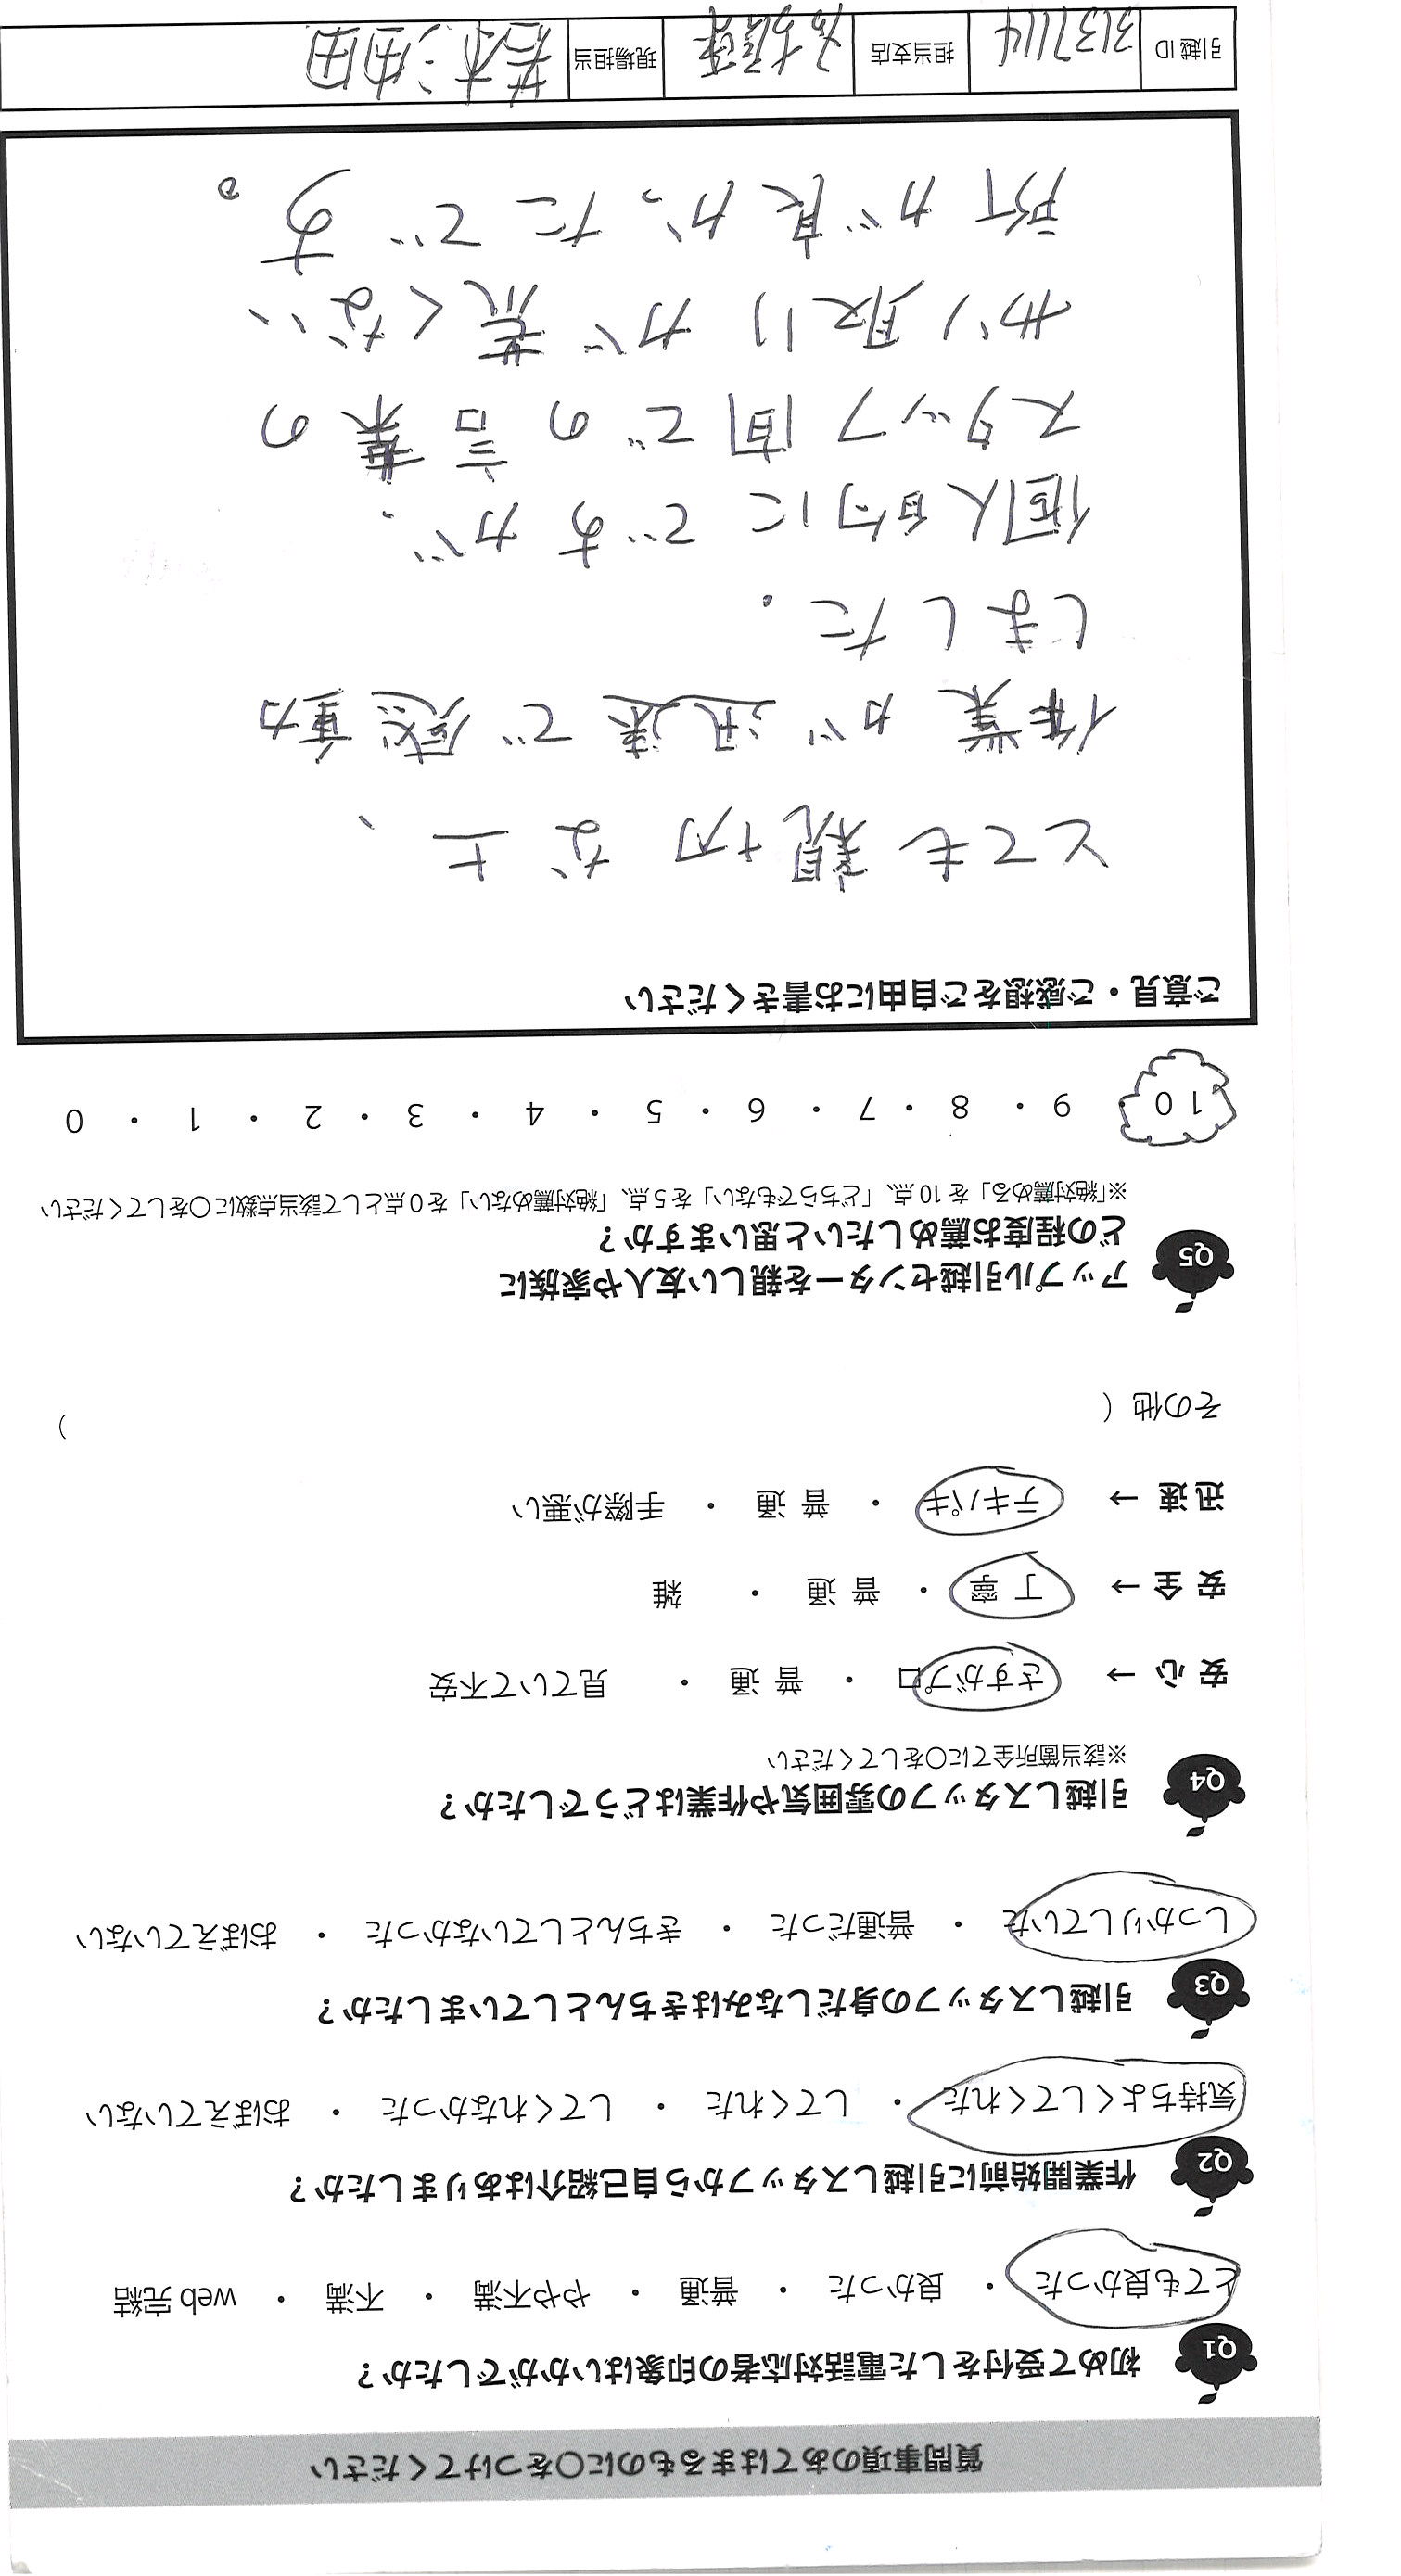 質問事項のあてはまるものに○をつけてください
Q1 初めて受付をした電話対応者の印象はいかがでしたか？
とても良かった ・ 良かった ・ 普通 ・ やや不満 ・ 不満 ・ web 完結
Q2 作業開始前に引越しスタッフから自己紹介はありましたか？
気持ちよくしてくれた ・ してくれた ・ してくれなかった ・ おぼえていない
Q3 引越しスタッフの身だしなみはきちんとしていましたか？
しっかりしていた ・ 普通だった ・ きちんとしていなかった ・ おぼえていない
Q4 引越しスタッフの雰囲気や作業はどうでしたか？
※該当箇所全てに○をしてください
安 心 → さすがプロ ・ 普 通 ・ 見ていて不安
安 全 → 丁 寧 ・ 普 通 ・ 雑
迅 速 → テキパキ ・ 普 通 ・ 手際が悪い
その他（ ）
Q5 アップル引越センターを親しい友人や家族に
どの程度お薦めしたいと思いますか？
※「絶対薦める」を 10 点、「どちらでもない」を 5 点、「絶対薦めない」を 0 点として該当点数に○をしてください
10 ・ 9 ・ 8 ・ 7 ・ 6 ・ 5 ・ 4 ・ 3 ・ 2 ・ 1 ・ 0
ご意見・ご感想をご自由にお書きください
とても親切な上、
作業が迅速で感動
しました.
個人的にですが、
スタッフ間での言葉の
やり取りが荒くない
所が良かったです。
引越 ID 3137114 担当支店 現場担当